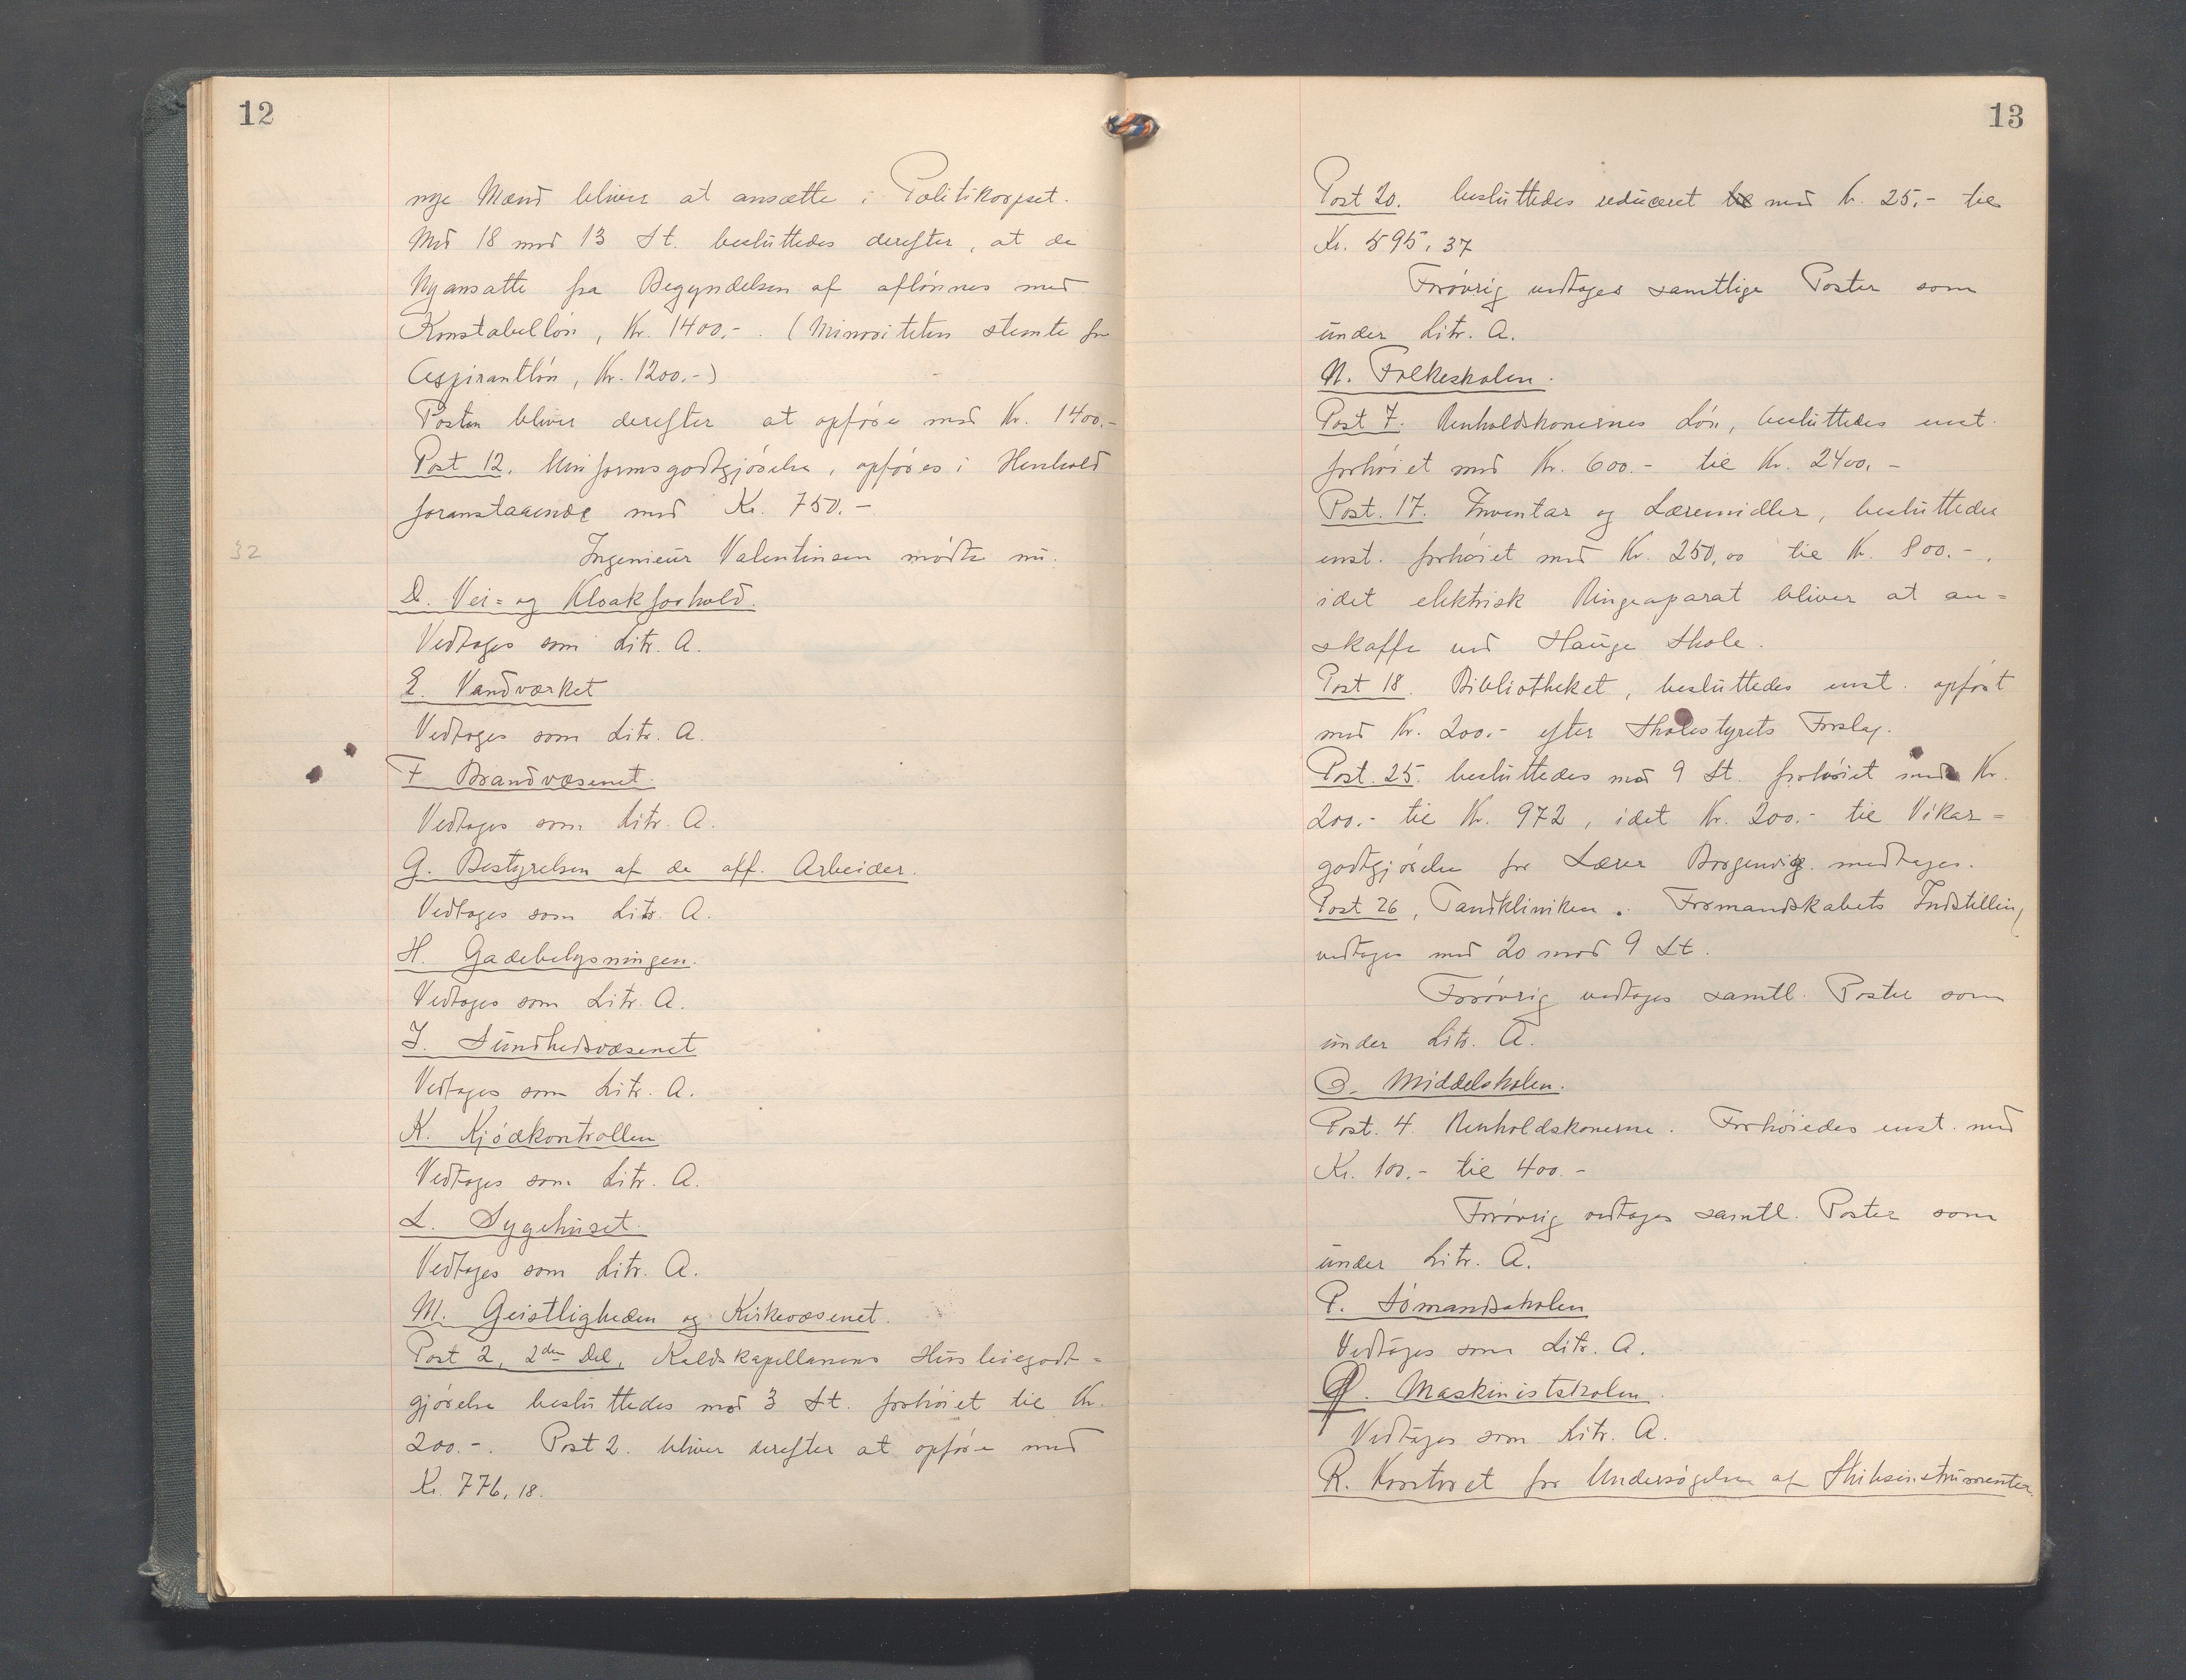 12
nye Mænd bliver at ansætte i Politikorpset.
Med 18 mod 13 St. besluttedes derefter, at de
Nyansatte fra Begyndelsen af aflønnes med
Konstabelløn, Kr. 1400.-. (Minoriteten stemte for
Aspirantløn, Kr. 1200.-)
Posten bliver derefter at opføre med Kr. 1400.-
Post 12. Uniformsgodtgjørelse, opføres i Henhold
foranstaaende med Kr. 750.-
32
Ingeniør Valentinsen mødte nu.
D. Vei- og Kloakforhold.
Vedtages som Litr. A.
E. Vandværket
Vedtages som Litr. A.
F Brandvæsenet.
Vedtages som Litr. A.
G. Bestyrelsen af de off. Arbeider.
Vedtages som Litr. A.
H. Gadebelysningen.
Vedtages som Litr. A.
J. Sundhedsvæsenet
Vedtages som Litr. A.
K. Kjødkontrollen
Vedtages som Litr. A.
L. Sygehuset.
Vedtages som Litr. A.
M. Geistligheden og Kirkevæsenet.
Post 2, 2den Del, Kaldskapellanens Husleiegodt=
gjørelse besluttedes mod 3 St. forhøiet til Kr.
200.-. Post 2. bliver derefter at opføre med
Kr. 776,18.
13
Post 20. besluttedes reduceret til med Kr. 25,- til
Kr. 595,37
Forøvrig vedtages samtlige Poster som
under Litr. A.
N. Folkeskolen.
Post 7. Renholdskonernes Løn, besluttedes enst.
forhøiet med Kr. 600.- til Kr. 2400,-
Post. 17. Inventar og Læremidler, besluttedes
enst. forhøiet med Kr. 250,00 til Kr. 800.-,
idet elektrisk Ringeaparat bliver at an=
skaffe ved Hauge Skole.
Post 18. Bibliotheket, besluttedes enst. opført
med Kr. 200.- efter Skolestyrets Forslag.
Post. 25. besluttedes mod 9 St. forhøiet med Kr.
200.- til Kr. 972, idet Kr. 200.- til Vikar=
godtgjørelse for Lærer Borgenvig medtages.
Post 26, Tandkliniken. Formandskabets Indstilling
vedtages med 20 mod 9 St.
Forøvrig vedtages samtl. Poster som
under Litr. A.
O. Middelskolen.
Post. 4. Renholdskonerne. Forhøiedes enst. med
Kr. 100.- til 400.-
Forøvrig vedtages samtl. Poster som
under Litr. A.
P. Sømandsskolen
Vedtages som Litr. A.
Q. Maskinistskolen.
Vedtages som Litr. A.
R. Kontoret for Undersøgelse af Skibsinstrumenter.